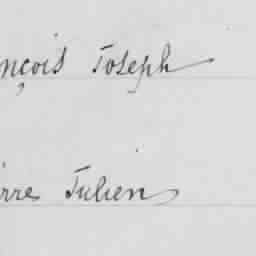 nçois Joseph
rre Julien